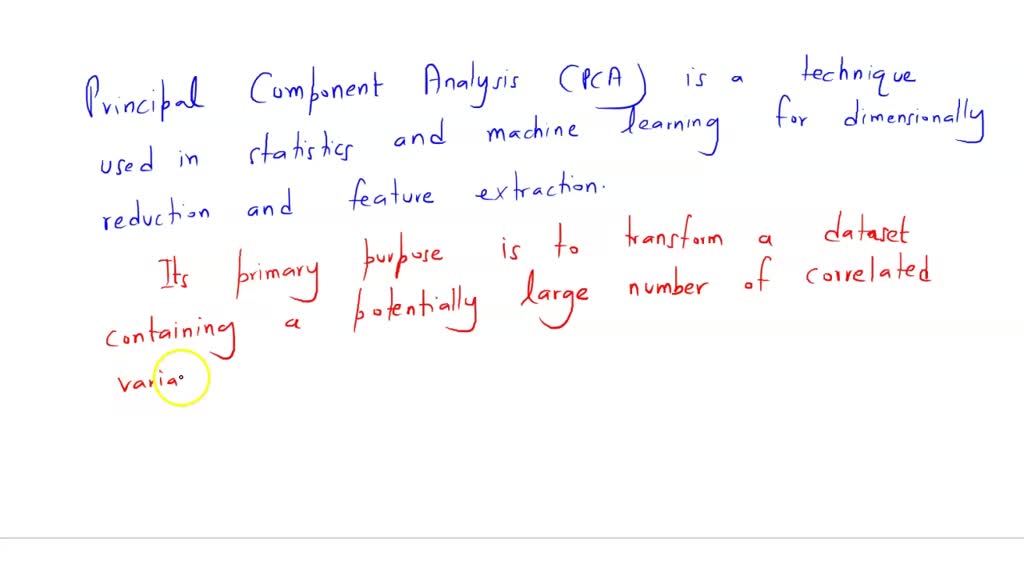 Principal Component Analysis (PCA) is a technique
used in statistics and machine learning for dimensionally
reduction and feature extraction.
Its primary purpose is to transform a dataset
containing a potentially large number of correlated
varia